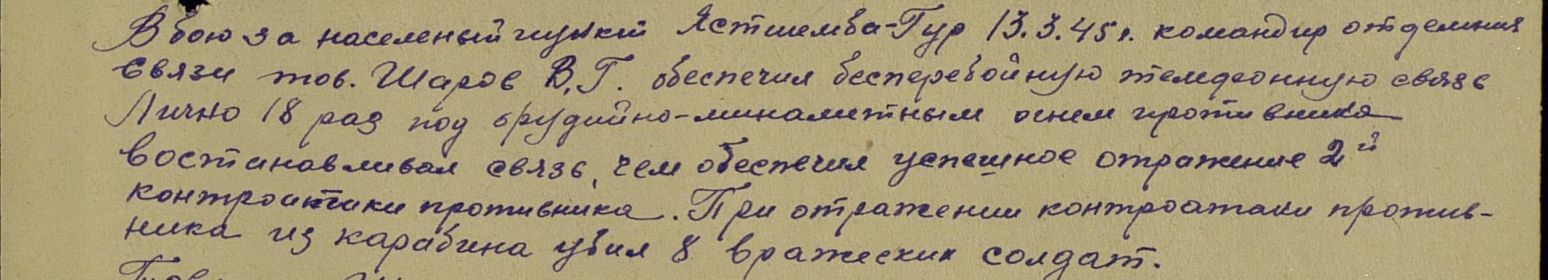 В бою за населеный пункт Ястшемба-Гур 13.3.45г. командир отделения
связи тов. Шаров В.Г. обеспечил бесперебойную телефонную связь
Лично 18 раз под орудийно-минаметным огнем противника
востанавливал связь, чем обеспечил успешное отражение 2й
контроатаки противника. При отражении контроатаки против-
ника из карабина убил 8 вражеских солдат.